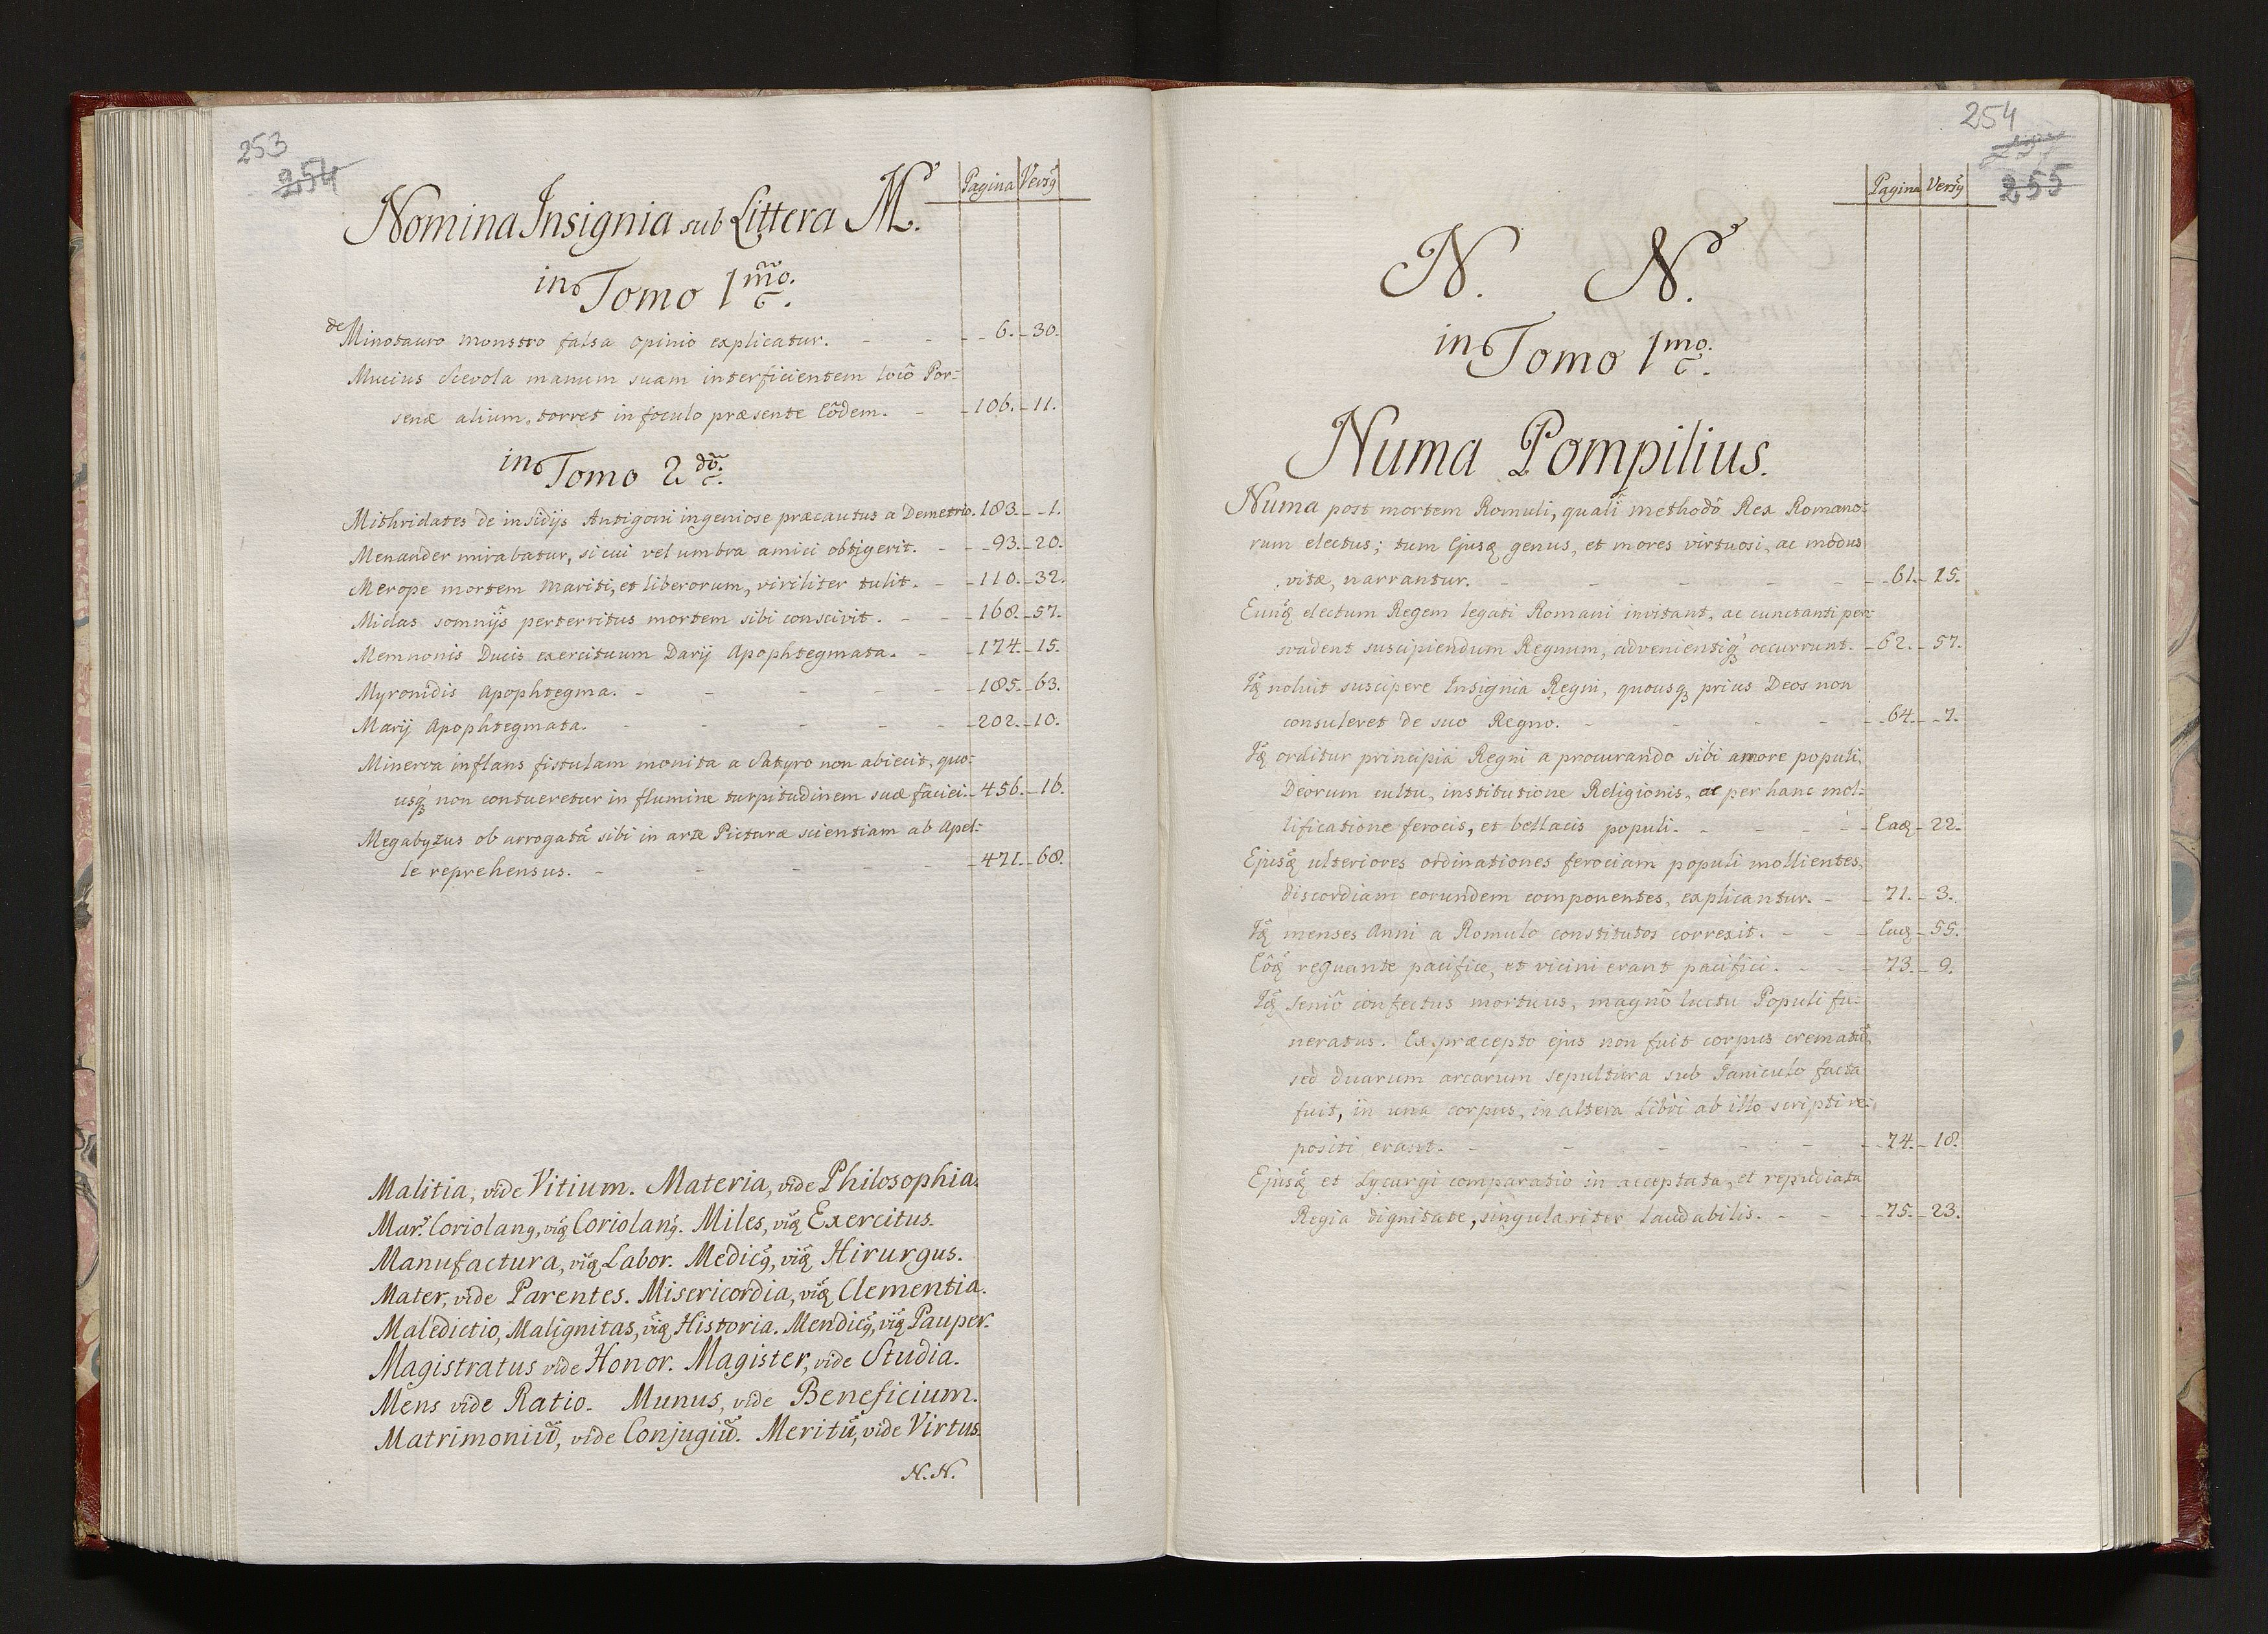 253
254
Pagina Versꝯ
Nomina Insignia sub Littera M.
in Tomo 1mo.
de Minotauro monstro falsa opinio explicatur. - - - 6. - 30.
Mucius Scevola manum suam interficientem locô Por-
senæ alium, torret in foculo præsente Eôdem. - - 106. - 11.
in Tomo 2dô.
Mithridates de insidijs Antigoni ingeniose præcautus a Demetrio. 183. - 1.
Menander mirabatur, si cui vel umbra amici obtigerit. - - 93. - 20.
Merope mortem mariti, et liberorum, viriliter tulit. - - 110. - 32.
Midas somnijs perterritus mortem sibi conscivit. - - - 168. - 57.
Memnonis Ducis exercituum Darij Apophtegmata. - - 174. - 15.
Myronidis Apophtegma. - - - - - - 185. - 63.
Marij Apophtegmata. - - - - - - 202. - 10.
Minerva inflans fistulam monita a Satyro non abiecit, quo-
usqꝫ non contueretur in flumine turpitudinem suæ faciei. - 456. - 16.
Megabyzus ob arrogatã sibi in arte Picturæ scientiam ab Apel-
le reprehensus. - - - - - - 471. - 68.
Malitia, vide Vitium. Materia, vide Philosophia.
Mar. Coriolanꝯ, viꝗ Coriolanꝯ. Miles, viꝗ Exercitus.
Manufactura, viꝗ Labor. Medicꝯ, viꝗ Hirurgus.
Mater, vide Parentes. Misericordia, viꝗ Clementia.
Maledictio, Malignitas, viꝗ Historia. Mendicꝯ, viꝗ Pauper.
Magistratus vide Honor. Magister, vide Studia.
Mens vide Ratio. Munus, vide Beneficium.
Matrimoniũ, vide Conjugiũ. Meritũ, vide Virtus.
N. N.
254
255
Pagina Versꝯ
N. N.
in Tomo 1mo.
Numa Pompilius.
Numa post mortem Romuli, quali methodô Rex Romano-
rum electus; tum Ejusꝗ genus, et mores virtuosi, ac modus
vitæ, narrantur. - - - - - - 61. - 15.
Eunꝗ electum Regem legati Romani invitant, ac cunctanti per-
svadent suscipiendum Regnum, advenientiqꝫ occurrunt. - 62. - 57.
Iꝗ noluit suscipere Insignia Regni, quousqꝫ prius Deos non
consuleret de suo Regno. - - - - - 64. - 7.
Iꝗ orditur principia Regni a procurando sibi amore populi,
Deorum cultu, institutione Religionis, ac per hanc mol-
lificatione ferocis, et bellacis populi. - - - - Eaꝗ - 22.
Ejusꝗ ulteriores ordinationes ferociam populi mollientes,
discordiam eorundem componentes, explicantur. - - 71. - 3.
Iꝗ menses Anni a Romulo constitutos correxit. - - - Eaꝗ - 55.
Eôꝗ regnante pacifice, et vicini erant pacifici. - - - 73. - 9.
Iꝗ seniô confectus mortuus, magnô luctu Populi fu-
neratus. Ex præcepto ejus non fuit corpus crematũ,
sed duarum arcarum sepultura sub Janiculo facta
fuit, in una corpus, in altera Libri ab illo scripti re-
positi erant. - - - - - - 74. - 18.
Ejusꝗ et Lycurgi comparatio in acceptata, et repudiata
Regia dignitate, singulariter laudabilis. - - - 75. - 23.